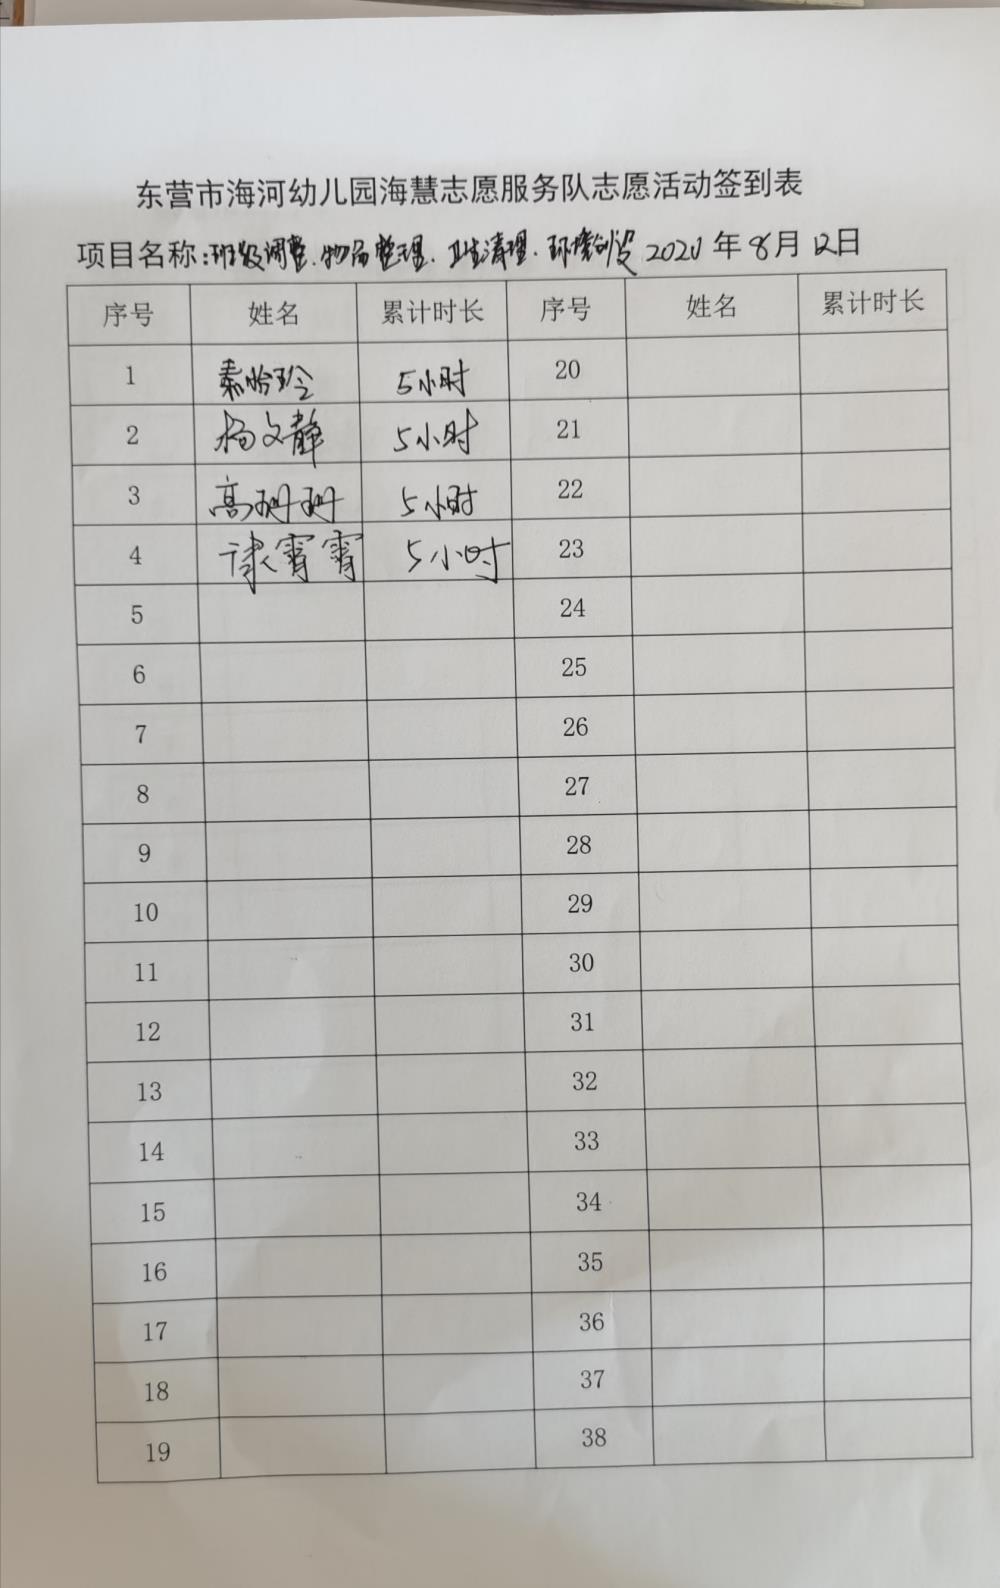 东营市海河幼儿园海慧志愿服务队志愿活动签到表
项目名称:班级调整、物品整理、卫生清理、环境创设 2020年8月12日
序号 姓名 累计时长 序号 姓名 累计时长
1 秦怡玲 5小时 20
2 杨文静 5小时 21
3 高珊珊 5小时 22
4 隶霄霄 5小时 23
5 24
6 25
7 26
8 27
9 28
10 29
11 30
12 31
13 32
14 33
15 34
16 35
17 36
18 37
19 38